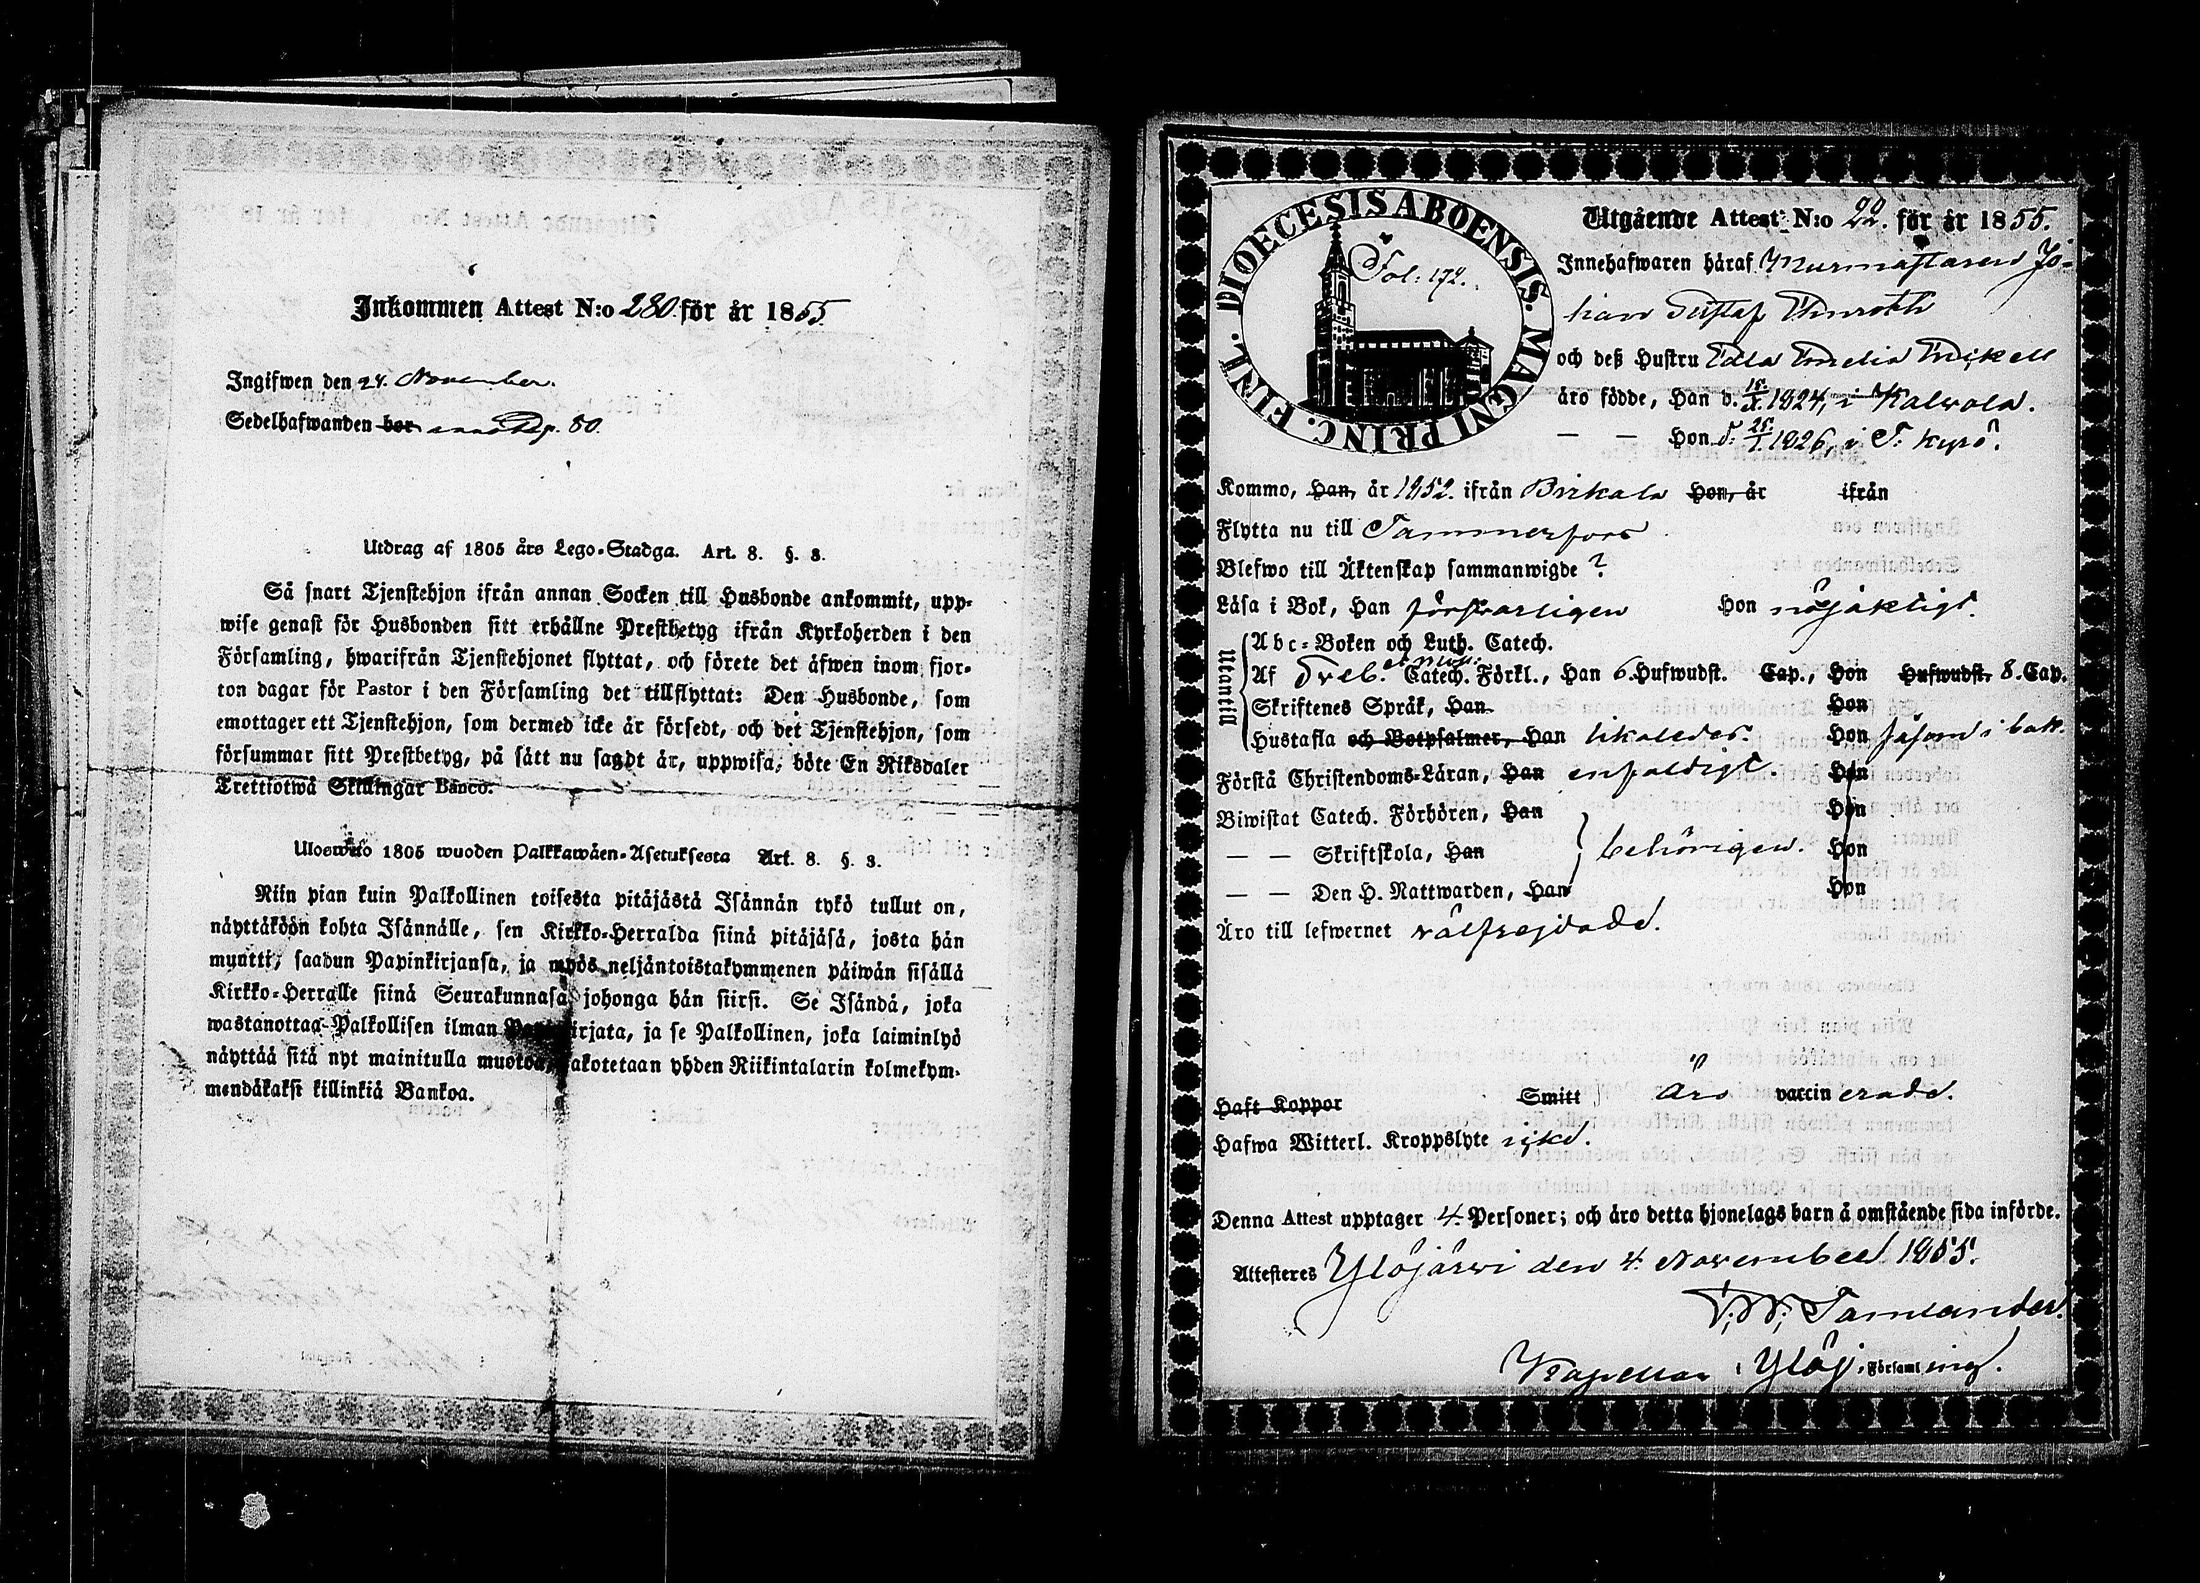 Inkommen Attest N:o 280. för år 1855.
Ingifwen den 24. November.
Sedelhafwanden bor pag. 80.
Utdrag af 1805 års Lego-Stadga. Art. 8. §. 3.
Så snart Tjenstehjon ifrån annan Socken till Husbonde ankommit, upp-
wise genast för Husbonden sitt erhållne Prestbetyg ifrån Kyrkoherden i den
Församling, hwarifrån Tjenstehjonet flyttat, och förete det äfwen inom fjor-
ton dagar för Pastor i den Församling det tillflyttat: Den Husbonde, som
emottager ett Tjenstehjon, som dermed icke är försedt, och det Tjenstehjon, som
försummar sitt Prestbetyg, på sätt nu sagdt är, uppwisa, böte En Riksdaler
Trettiotwå Skillingar Banco.
Uloswéto 1805 wuoden Palkkawäen-Asetuksesta Art. 8. §. 3.
Niin pian kuin Palkollinen toisesta pitäjästä Isännän tykö tullut on,
näyttäköön kohta Isännälle, sen Kirkko-Herralda siinä pitäjäsä, josta hän
muutti, saadun Papinkirjansa, ja myös neljäntoistakymmenen päiwän sisällä
Kirkko-Herralle siinä Seurakunnasa johonga hän siirsi. Se Isändä, joka
wastanottaa Palkollisen ilman irjata, ja se Palkollinen, joka laiminlyö
näyttää sitä nyt mainitulla muotoa, akotetaan yhden Riikintalarin kolmekym-
mendäkaksi killinkiä Bankoa.
DIOECESIS ABOENSIS. MAGNI PRINC. FINL.
Fol: 172.
Utgående Attest N:o 22. för år 1855.
Innehafwaren häraf Murmästaren Jo-
han Gustaf Thuroth
och deß Hustru Edla Emelia Frickell
äro födde, Han d. 1824, i Kalvola.
— — Hon d. 25. 1826, i T: Kyrö.
Kommo, Han, år 1852. ifrån Birkala Hon, år ifrån
Flytta nu till Tammerfors
Blefwo till Äktenskap sammanwigde ?
Läsa i Bok, Han försvarligen Hon nöjaktigt.
Utantill
Abc-Boken och Luth. Catech.
Af Treb. Catech. Förkl., Han 6. Hufwudst. Cap., Hon Hufwudst. 8. Cap.
Skriftenes Språk, Han Hon
Hustafla och Botpsalmer, Han likaledes. Hon såsom i bok.
Förstå Christendoms-Läran, Han enfaldigt. Hon
Biwistat Catech. Förhören, Han Hon
— — Skriftskola, Han behörigen. Hon
— — Den H. Nattwarden, Han Hon
Äro till lefwernet välfrejdade.
Haft Koppor Smitt Äro vaccinerade.
Hafwa Witterl. Kroppslyte icke.
Denna Attest upptager 4. Personer; och äro detta hjonelags barn å omstående sida införde.
Attesteres Ylöjärwi den 4. November 1855.
Tamlander.
Kapellan i Ylöj. Församling.